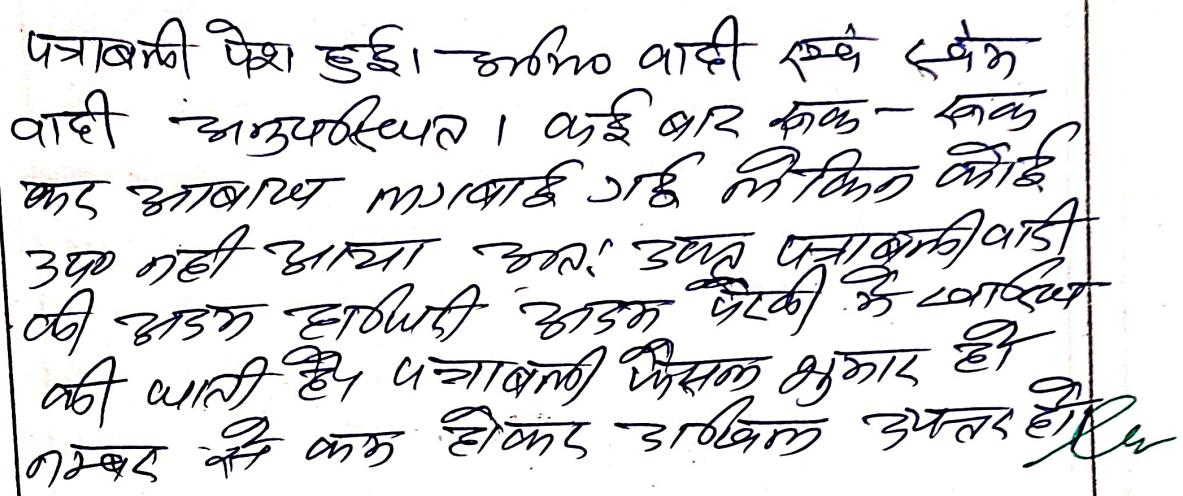 पत्रावली पेश हुई। अभि० वादी एवं स्वंम
वादी अनुपस्थित। कई बार रूक - रूक
कर आबाज लगबाई गई लेकिन कोई
उप० नही आया अत: उक्त पत्राबली वादी
की अदम हाजिरी अदम पैरबी मे खारिज
की जाती है। पत्राबली फैसल शुमार हो
नम्बर से कम होकर दाखिल दफ्तर हो।